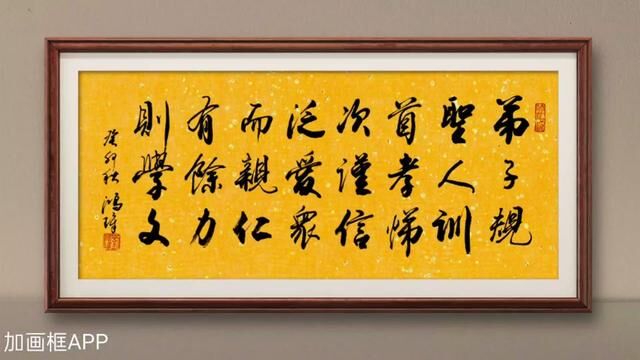 弟子規
聖人訓
首孝悌
次謹信
泛愛衆
而親仁
有餘力
則學文
癸卯秋鴻璋
加画框APP